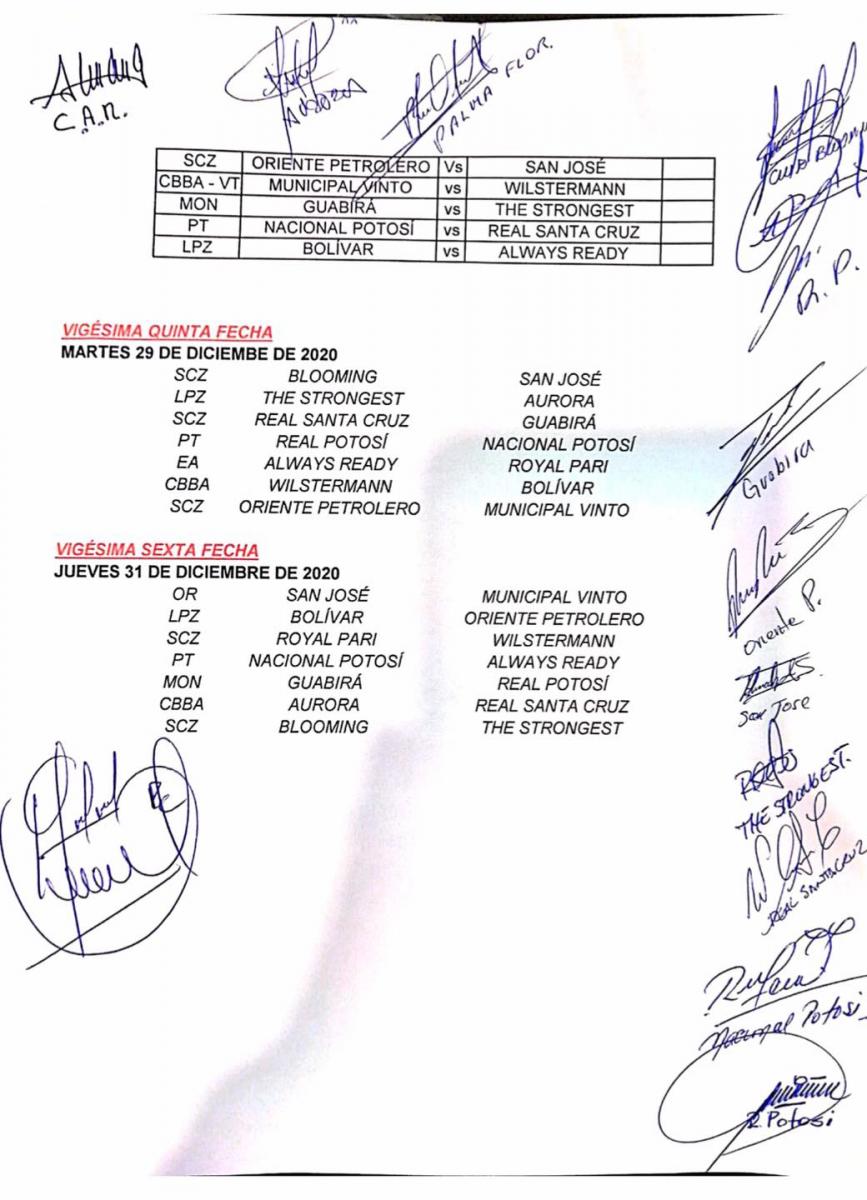 C.A.R.
AURORA
PALMA FLOR.
CLUB BLOOMING
SCZ ORIENTE PETROLERO Vs SAN JOSÉ
CBBA - VT MUNICIPAL VINTO vs WILSTERMANN
MON GUABIRÁ vs THE STRONGEST
PT NACIONAL POTOSÍ vs REAL SANTA CRUZ
LPZ BOLÍVAR vs ALWAYS READY
R. P.
VIGÉSIMA QUINTA FECHA
MARTES 29 DE DICIEMBE DE 2020
SCZ BLOOMING SAN JOSÉ
LPZ THE STRONGEST AURORA
SCZ REAL SANTA CRUZ GUABIRÁ
PT REAL POTOSÍ NACIONAL POTOSÍ
EA ALWAYS READY ROYAL PARI
CBBA WILSTERMANN BOLÍVAR
SCZ ORIENTE PETROLERO MUNICIPAL VINTO
Guabira
VIGÉSIMA SEXTA FECHA
JUEVES 31 DE DICIEMBRE DE 2020
OR SAN JOSÉ MUNICIPAL VINTO
LPZ BOLÍVAR ORIENTE PETROLERO
SCZ ROYAL PARI WILSTERMANN
PT NACIONAL POTOSÍ ALWAYS READY
MON GUABIRÁ REAL POTOSÍ
CBBA AURORA REAL SANTA CRUZ
SCZ BLOOMING THE STRONGEST
Oriente P.
San Jose
THE STRONGEST.
REAL SANTA CRUZ
Nacional Potosi
R. Potosi